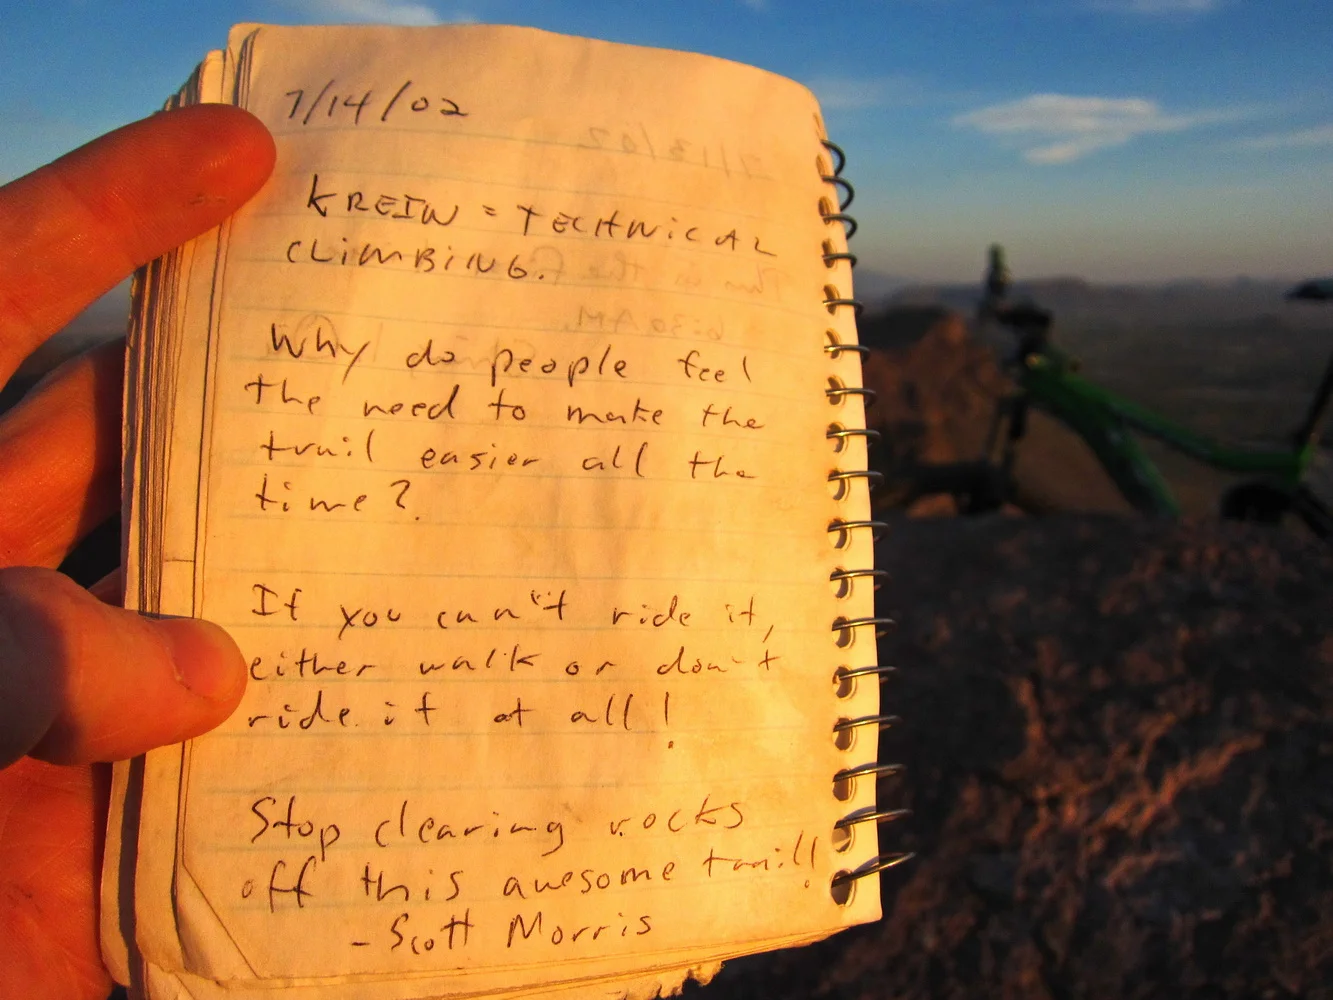 7/14/02
KREIW = TECHNICAL
CLIMBING.
Why do people feel
the need to make the
trail easier all the
time?
If you can't ride it,
either walk or don't
ride it at all!
Stop clearing rocks
off this awesome trail!
- Scott Morris